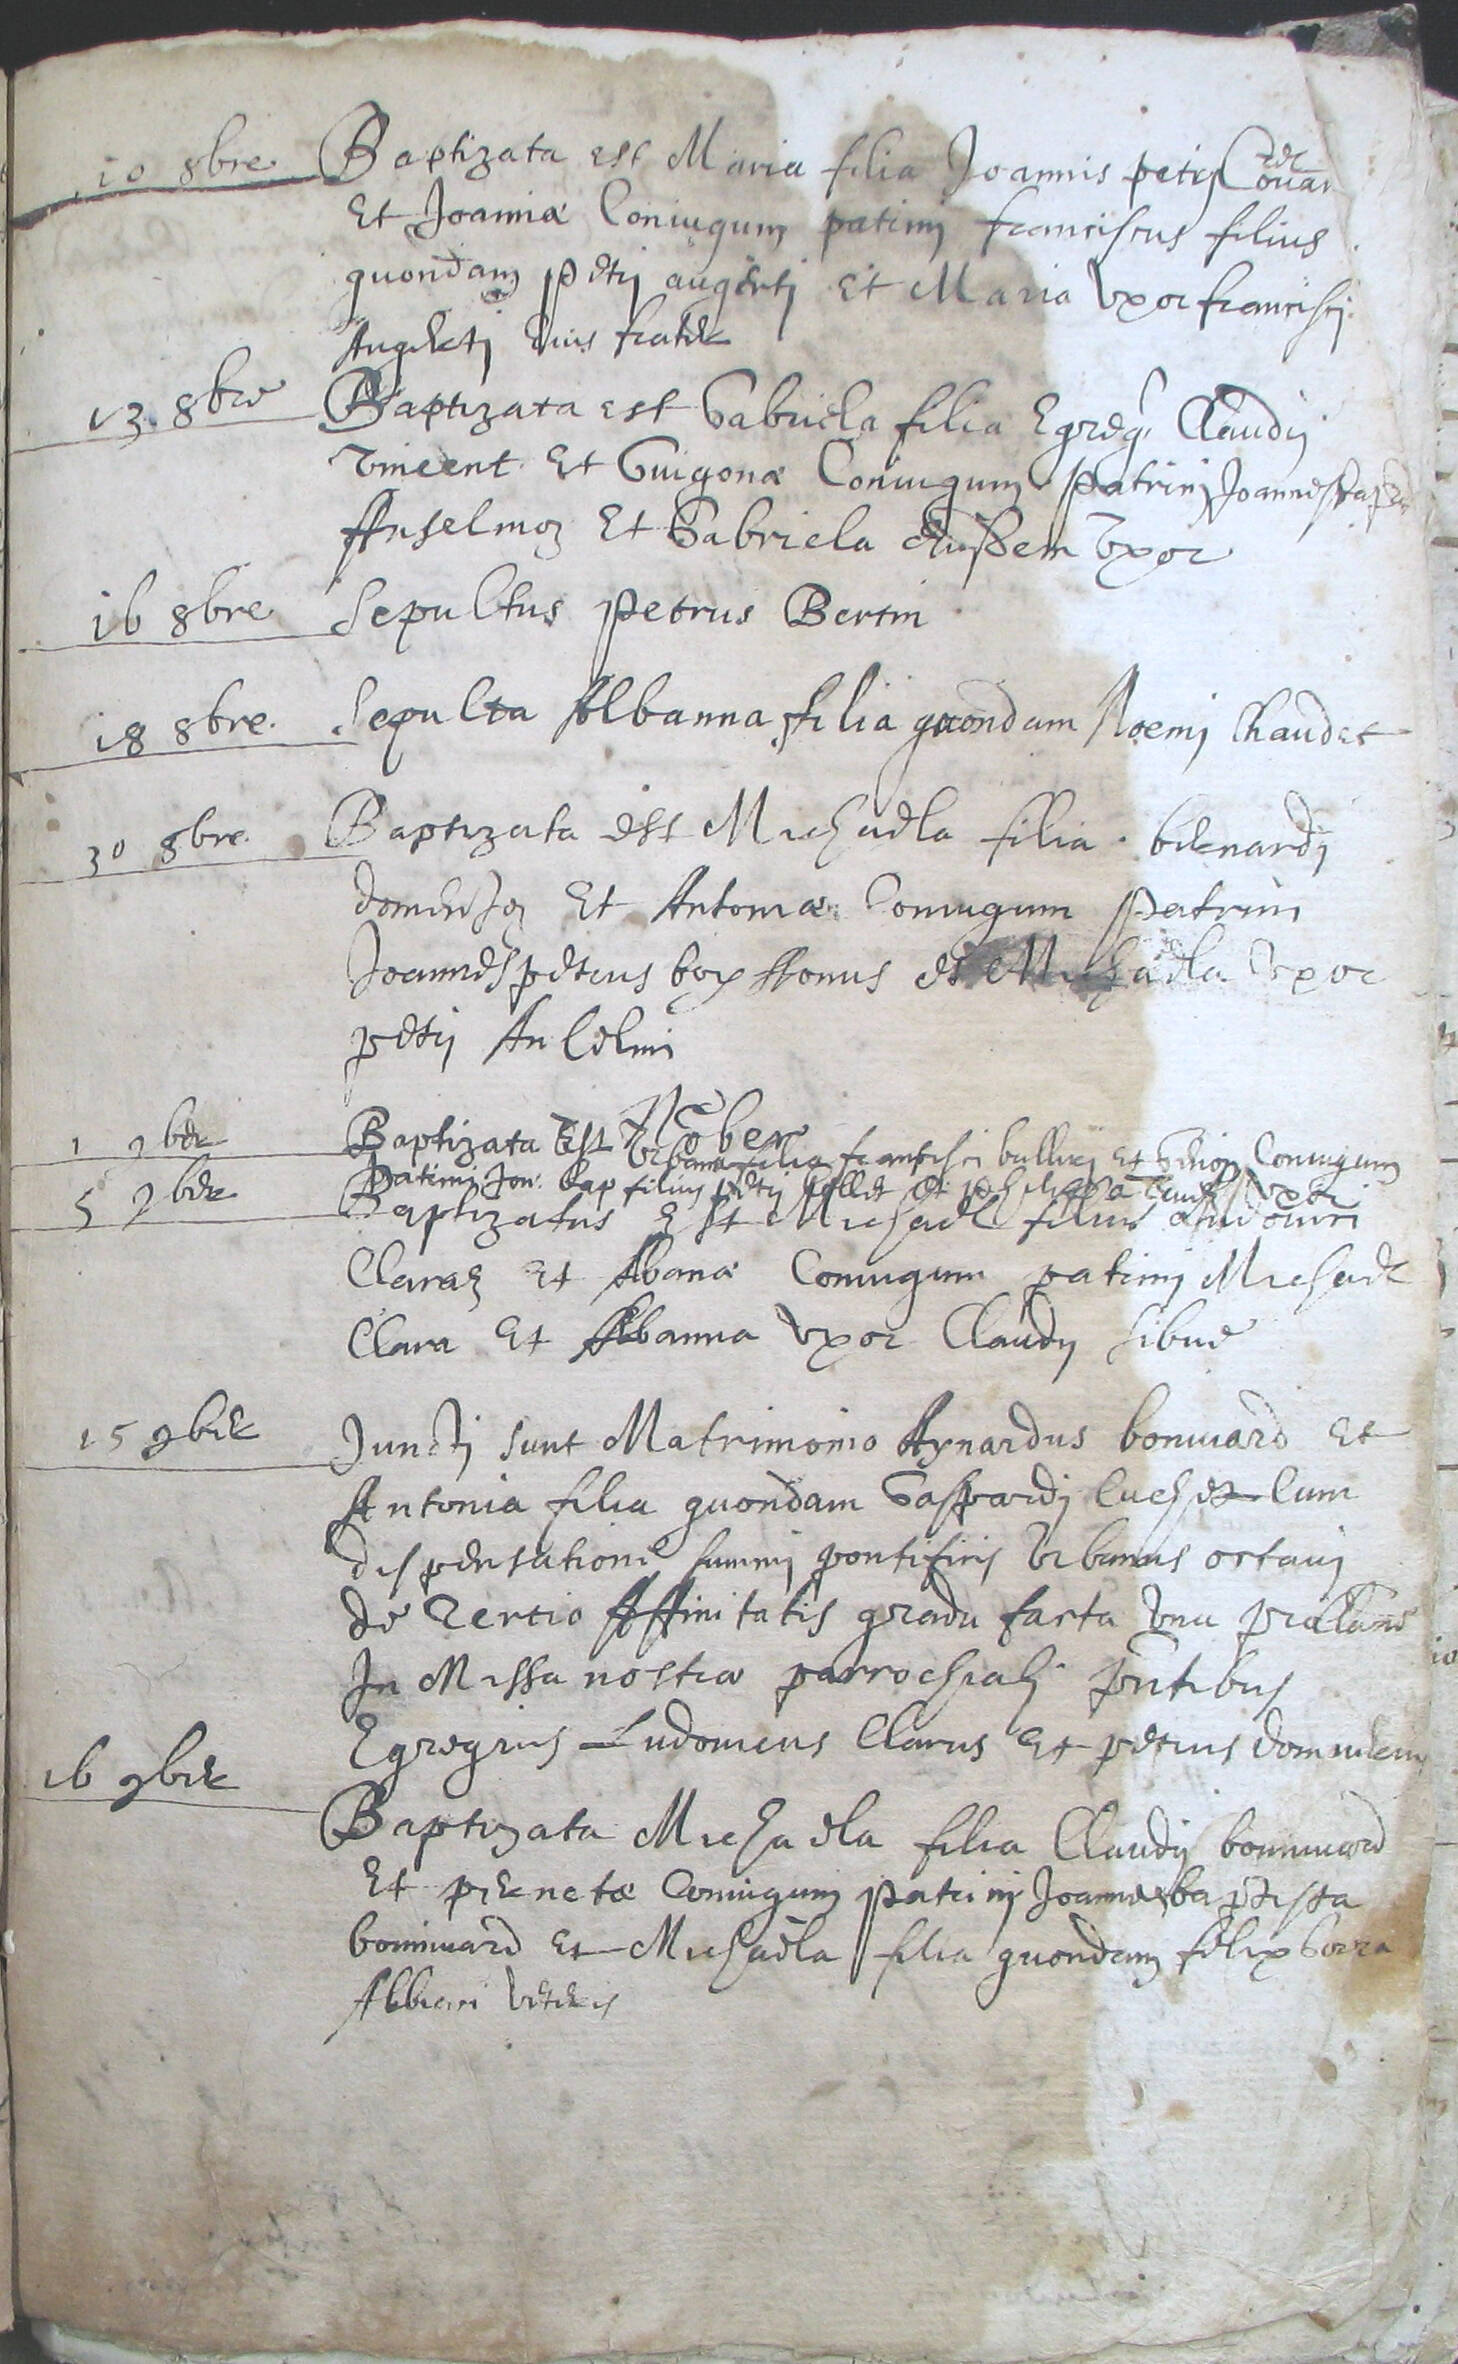 10 8bre Baptizata est Maria filia Joannis petri Couar
Et Joannæ Coniugum patrinj franciscus filius
quondam petrj augertj et Maria Vxor francisci
Augertj Eius frater
13 8bre Baptizata est Gabriela filia Egreg. Claudij
Vincent Et Guigonæ Coniugum patrinj Joannes
Anselmoz Et Gabriela Eiusdem Vxor
16 8bre Sepultus Petrus Bertin
18 8bre Sepulta Albanna filia quondam Noemj Chaudet
30 8bre Baptizata est Michaela filia bernardj
Et Antoniæ Coniugum Patrini
Joannes petrus et Michaela Vxor
petrj Anselmi
9ber
1 9ber Baptizata Est Urbana filia francisci bullici et Coniugum
patrinj Jon. bap filius petrj et Vxor
5 9ber Baptizatus Est Michael filius Ludouici
Claraz et Abanæ Coniugum patrinj Michael
Clara et Albanna Vxor Claudij Sibue
15 9ber Junctj sunt Matrimonio Aynardus boniuard Et
Antonia filia quondam Gaspardj Cuchet Cum
dispensatione summj pontificis Vrbanus octauj
de Tertio Affinitatis gradu facta Vna
In Missa nostræ parrochialj pntibus
Egregius Ludouicus Clarus Et petrus
16 9ber Baptizata Michaela filia Claudij boniuard
Et pernetæ Coniugum patrinj Joannes baptista
boniuard et Michaela filia quondam felix borra
Albieni Veteris